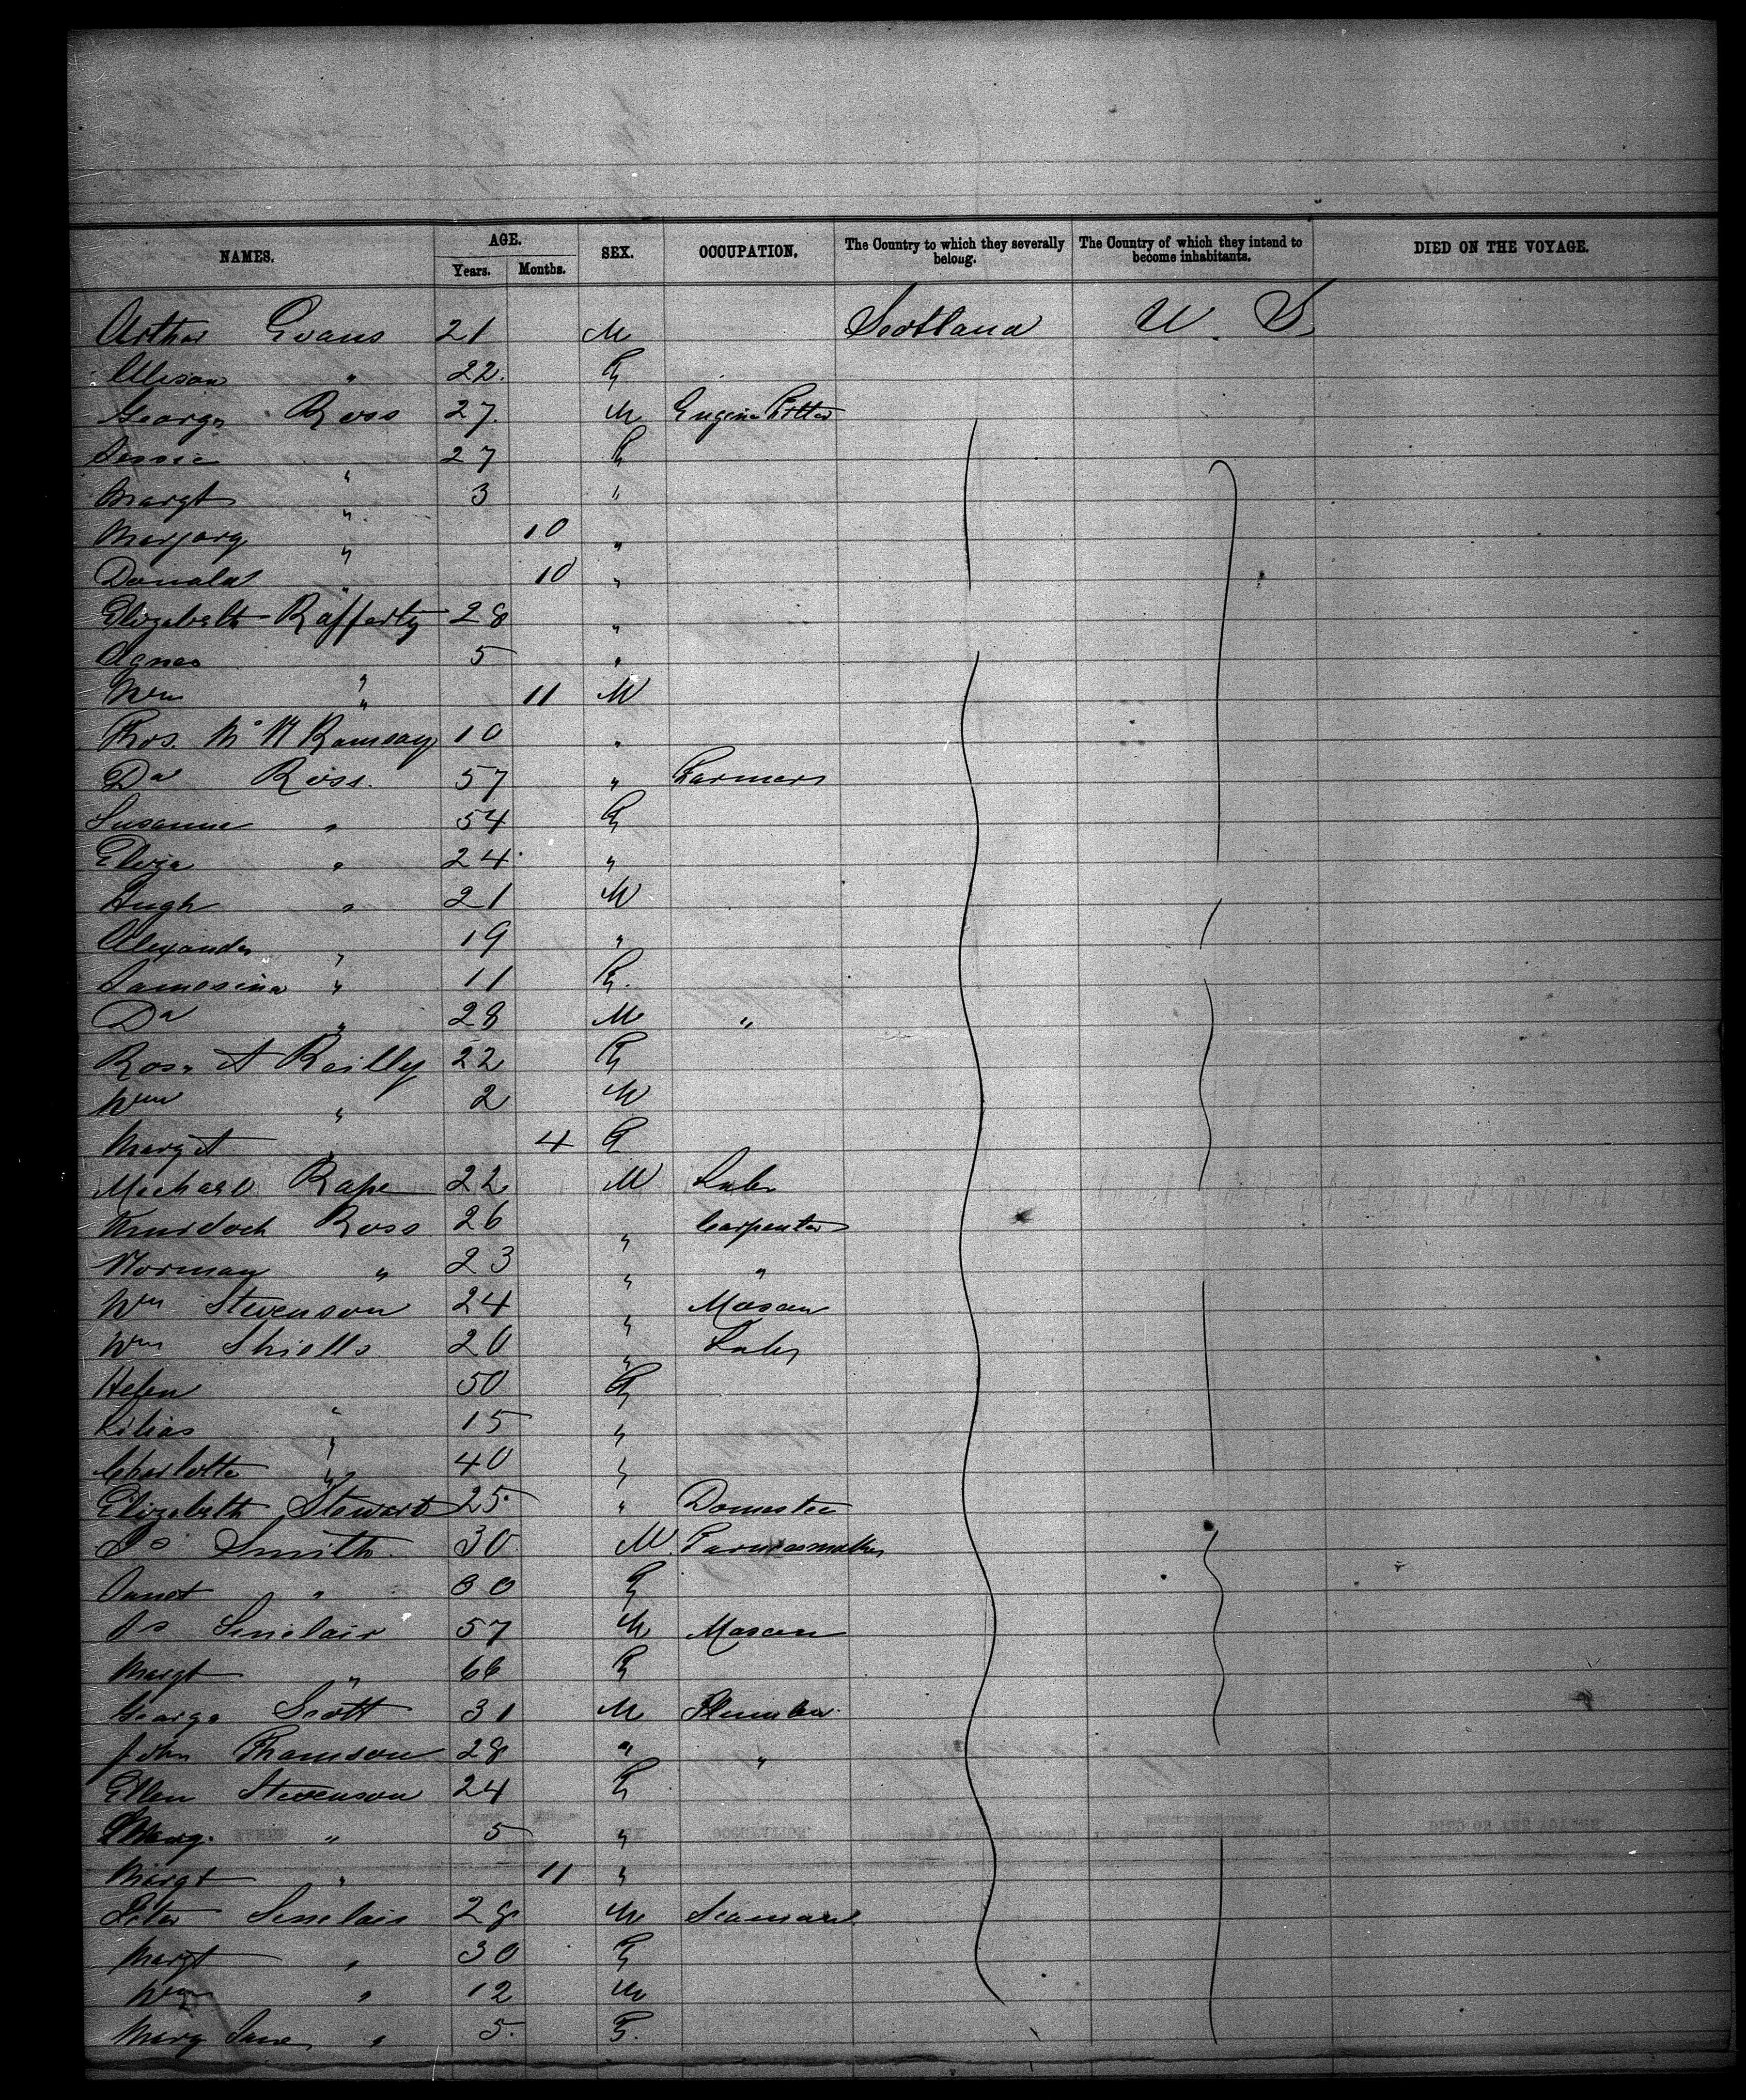 NAMES. AGE. SEX. OCCUPATION. The Country to which they severally belong. The Country of which they intend to become inhabitants. DIED ON THE VOYAGE.
Years. Months.
Arthur Evans 21 M Scotland U S
Alison " 22 F
George Ross 27 M Engine Fitter
Jessie " 27 F
Margt " 3 "
Marjory " 10 "
Donald " 10 "
Elizabeth Rafferty 28 "
Agnes " 5 "
Wm " 11 M
Thos. Mc Ramsay 10 "
Dd Ross 57 " Farmer
Susanna " 54 F
Eliza " 24 "
Hugh " 21 M
Alexander " 19 "
Jamesina " 11 F
Dd " 28 M "
Rose A Reilly 22 F
Wm " 2 M
Margt " 4 F
Michael Rape 22 M Labr
Murdoch Ross 26 " Carpenter
Norman " 23 " "
Wm Stevenson 24 " Mason
Wm Shiells 20 " Labr
Helen " 50 F
Lilias " 15 "
Charlotte " 40 "
Elizabeth Stewart 25 " Domestic
Js Smith 30 M
Janet " 30 F
Js Sinclair 57 M Mason
Margt " 66 F
George Scott 31 M Plumber
John Thomson 28 " "
Ellen Stevenson 24 F
" 5 "
Margt " 11 "
Peter Sinclair 28 M Seaman
Margt " 30 F
Wm " 12 M
Mary Jane " 5 F